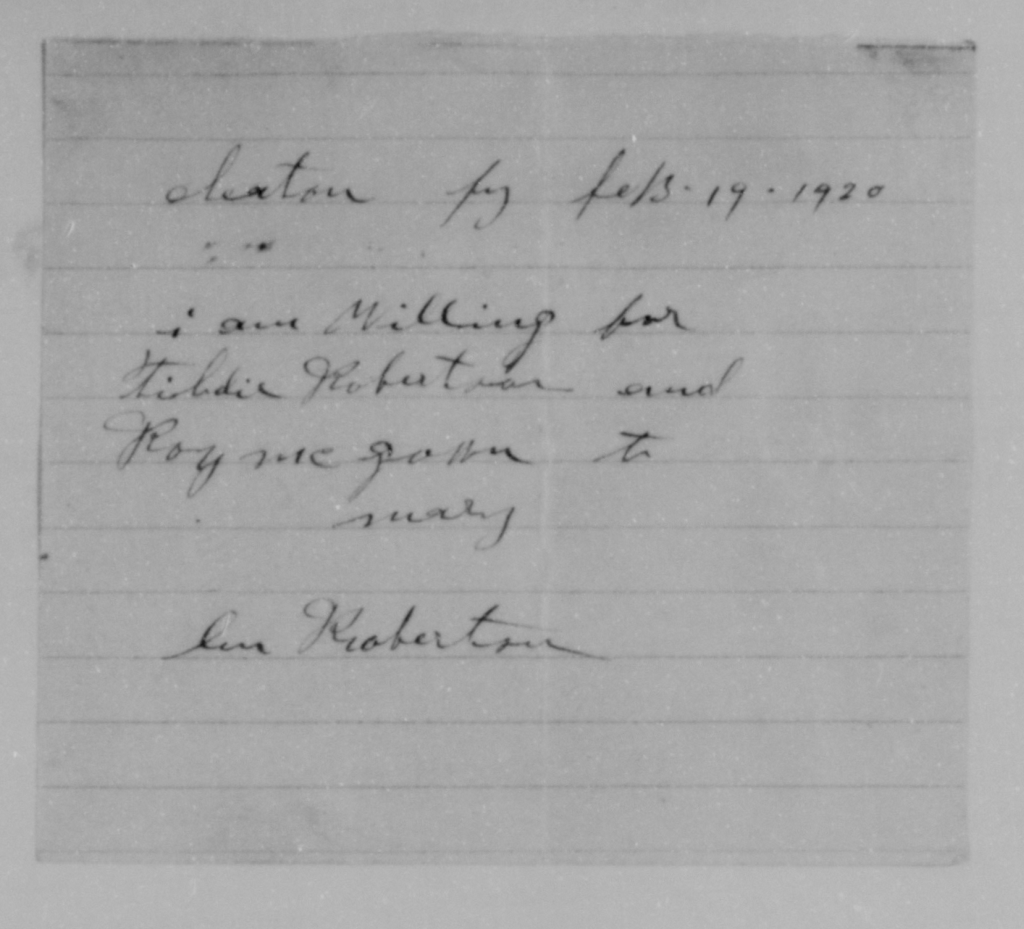 cleaton ky feb. 19. 1920
i am Willing for
Robertson and
Roy mc gown to
mary
Robertson